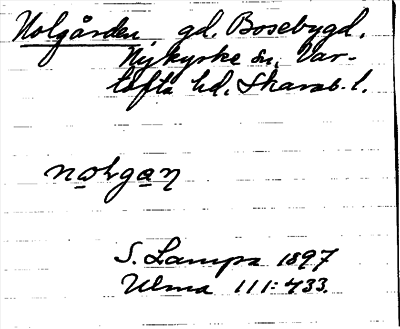 Nolgården gd. Bosebygd.
Nykyrke sn. Var-
tofta hd. Skarab. l.
nolgan
S. Lampa 1897
Ulma 111:433.